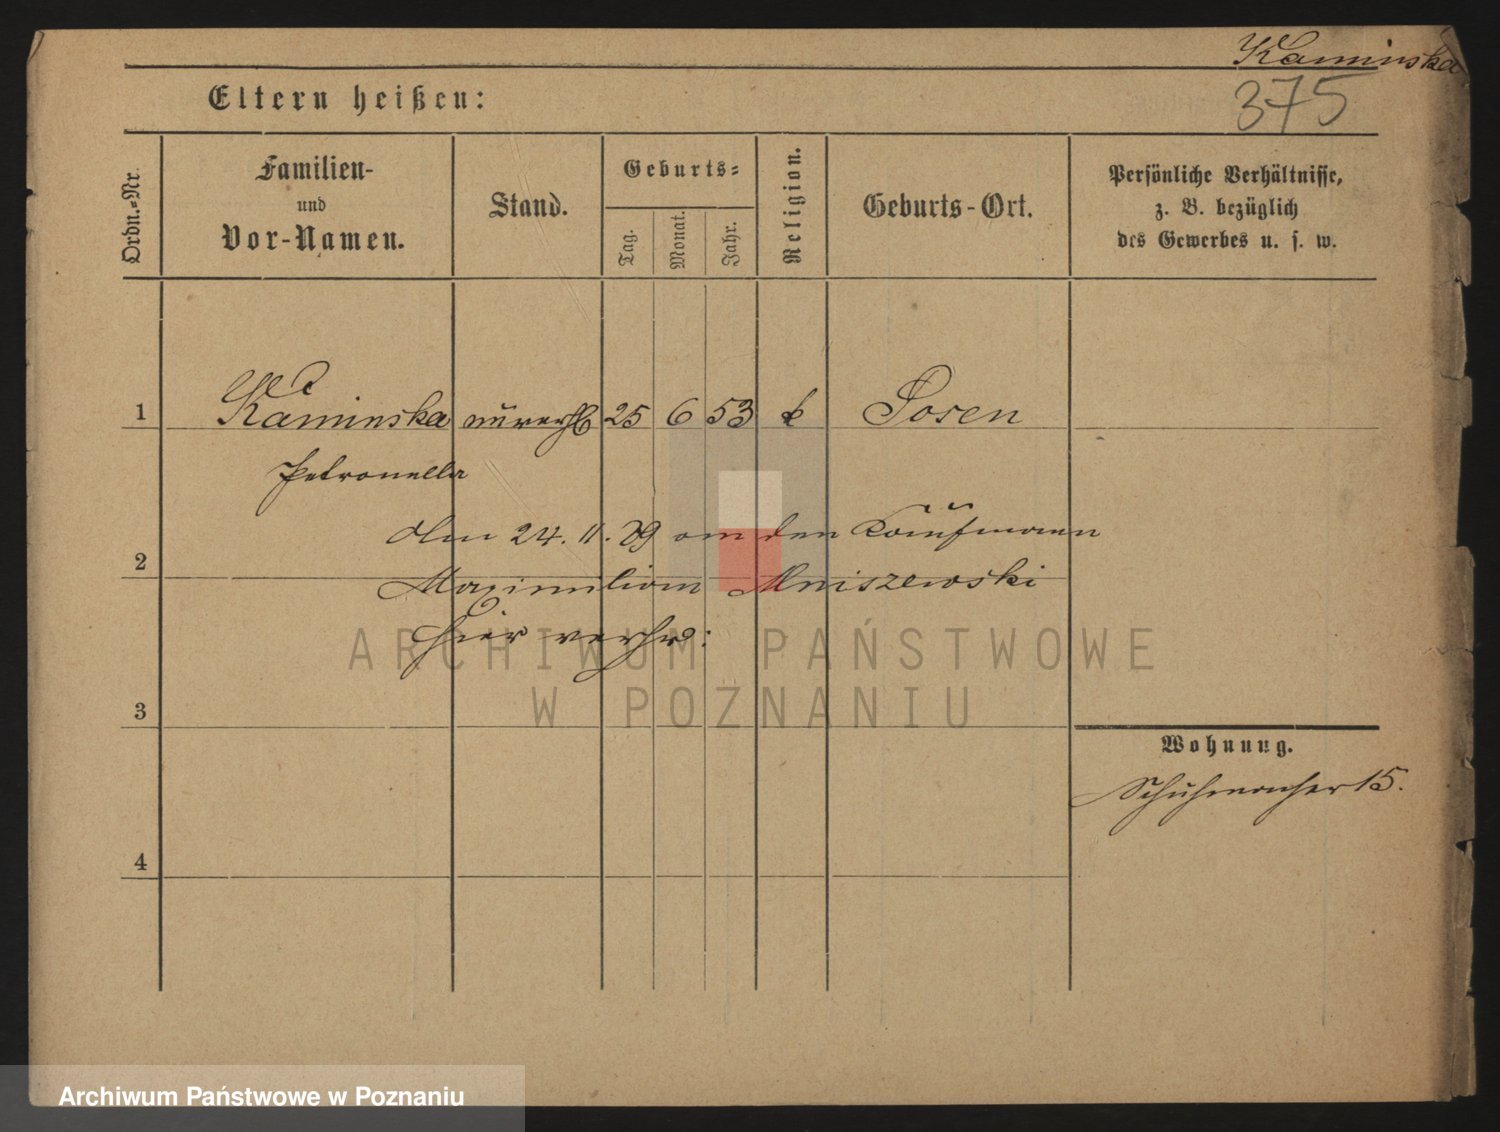 Kaminska
375
Eltern heißen:
Ordn.-Nr.
Familien-
und
Vor-Namen.
Stand.
Geburts-
Tag.
Monat.
Jahr.
Religion.
Geburts-Ort.
Persönliche Verhältnisse,
z. B. bezüglich
des Gewerbes u. s. w.
1 Kaminska unverh 25 6 53 k Posen
Petronella
Am 24. 11. 79 an den Kaufmann
2
Maximilian Mniszewski
hier verhr:
ARCHIWUM PAŃSTWOWE
W POZNANIU
3
Wohnung.
Schuhmacher 15.
4
Archiwum Państwowe w Poznaniu